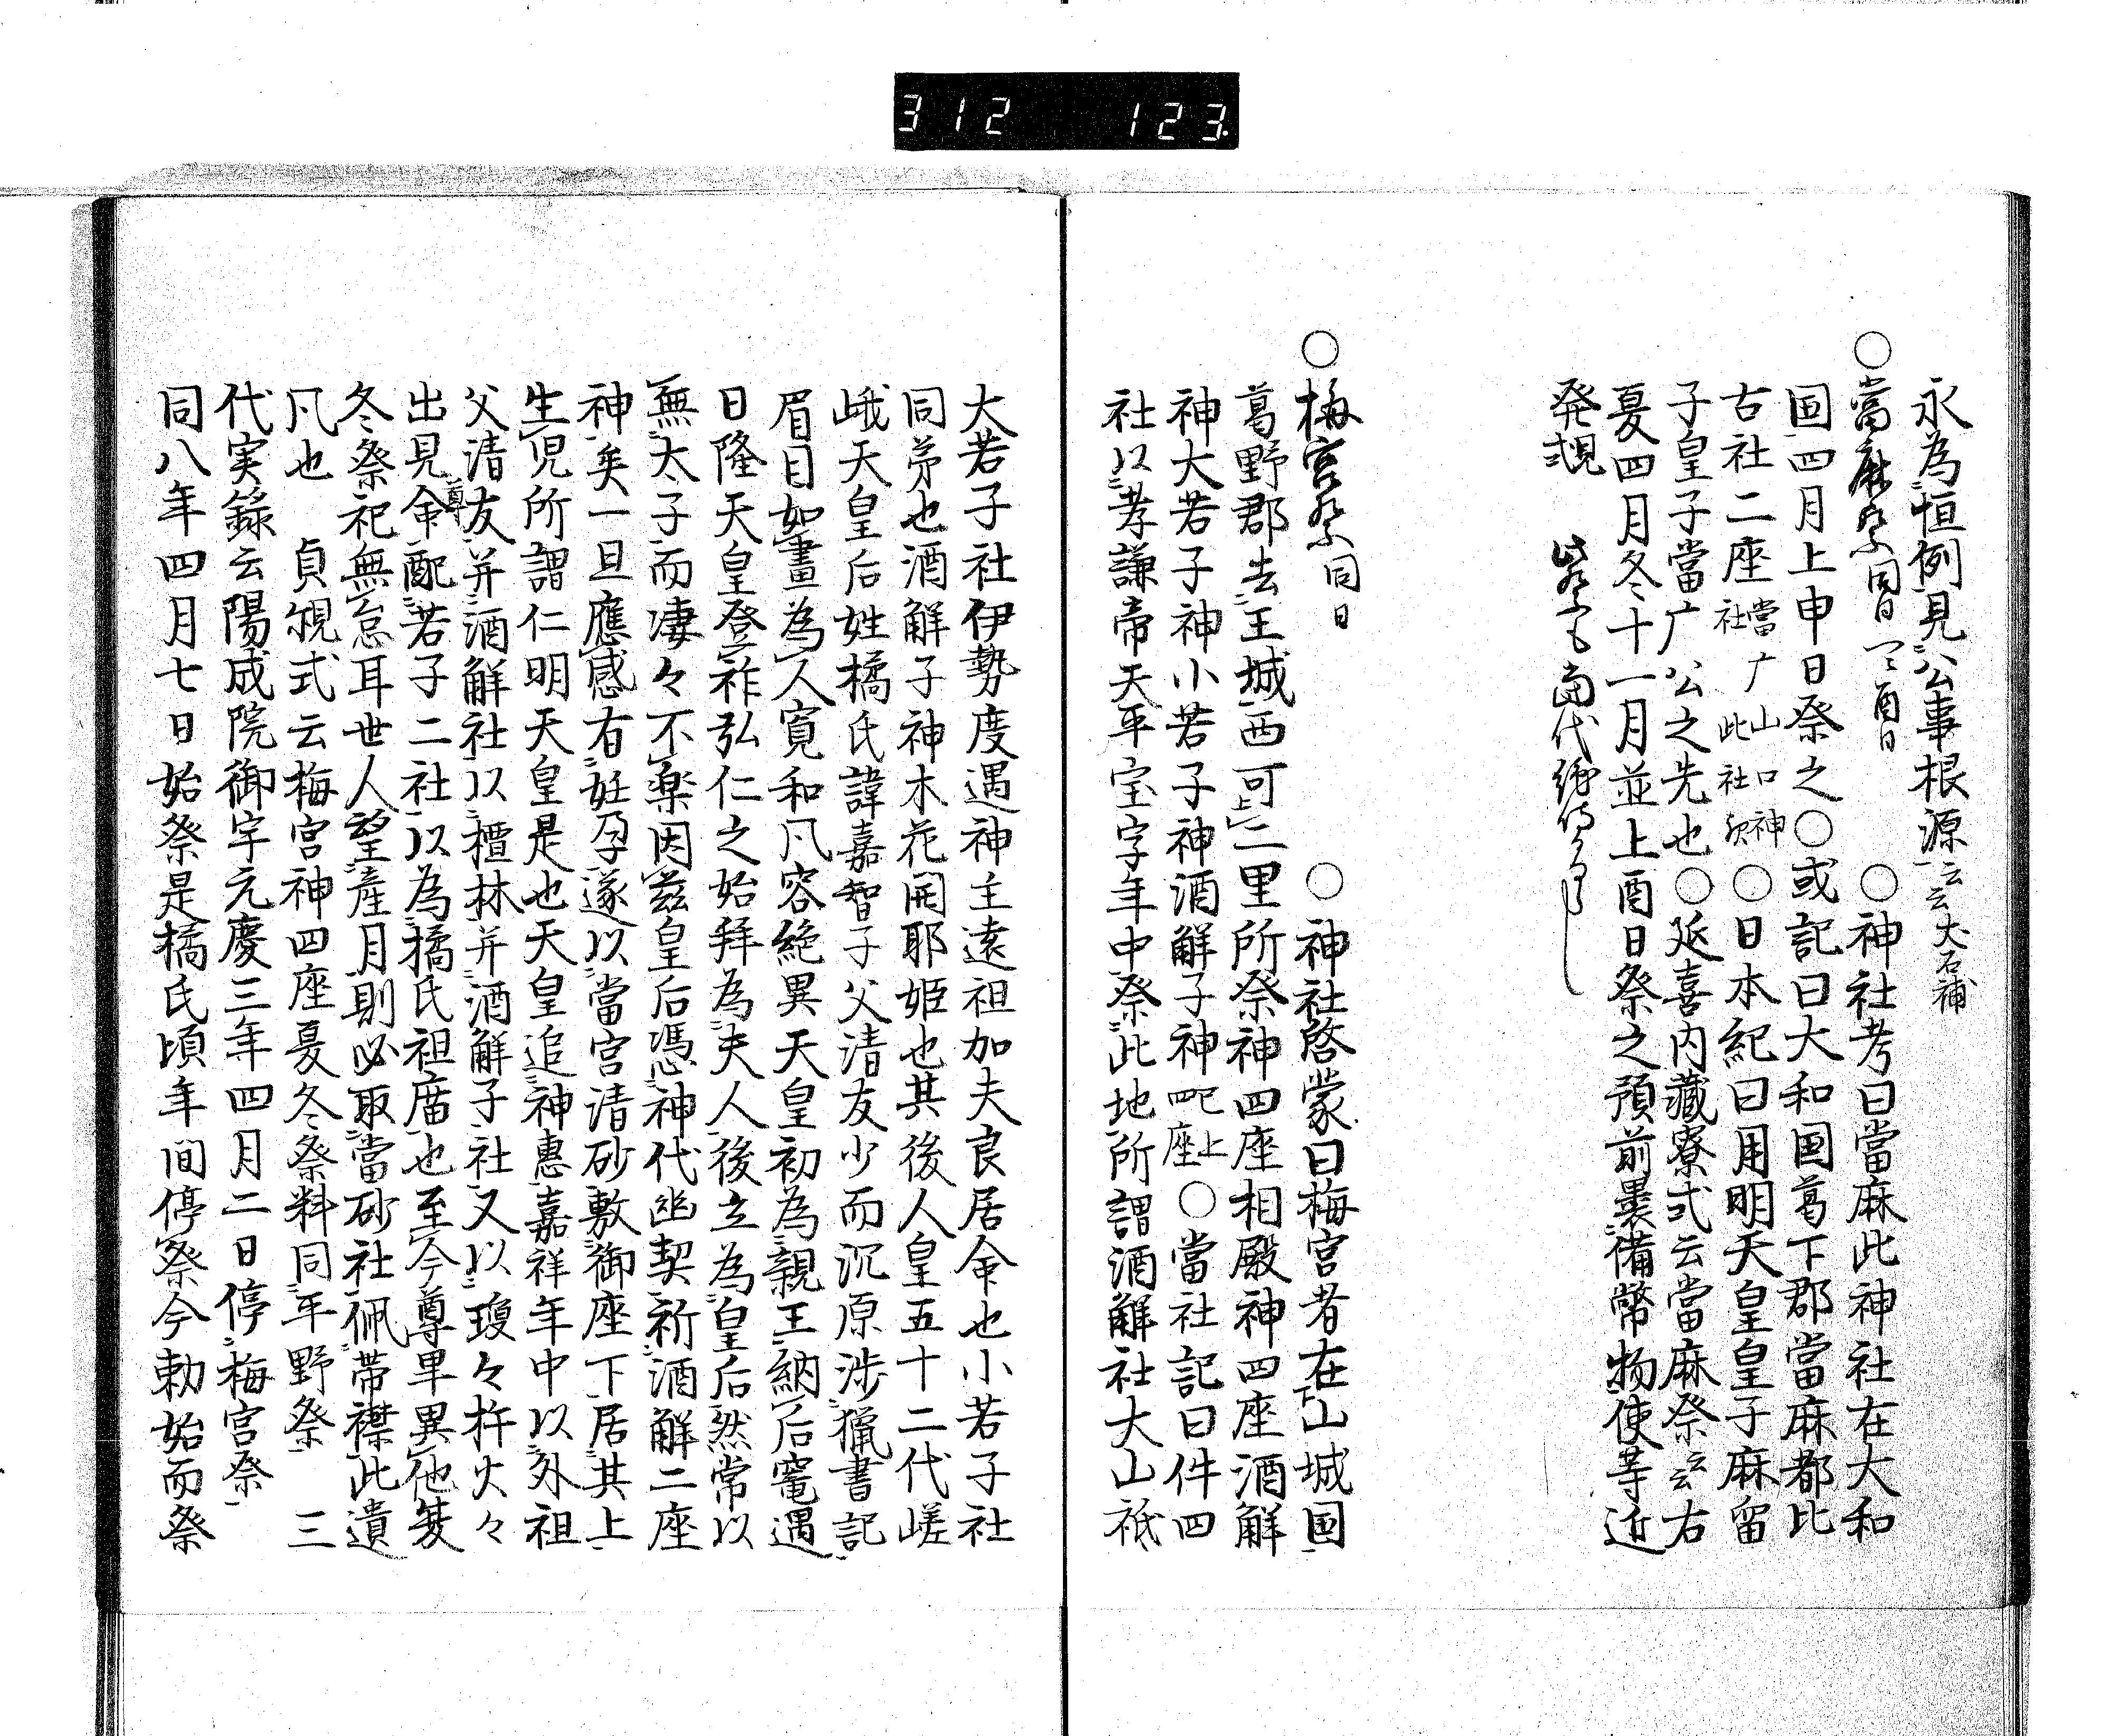 312 123.
永為恒例見公事根源云云大石補
○當麻祭同日 酉日 ○神社考曰當麻此神社在大和
国四月上申日祭之○或記曰大和国葛下郡當麻都比
古社二座當广山口神社此社歟○日本紀曰用明天皇皇子麻留
子皇子當广公之先也○延喜内藏寮式云當麻祭云云右
夏四月冬十一月並上酉日祭之預前褁備幣物使等近
発覡 此祭も當代
○梅宮祭同日 ○神社啓蒙曰梅宮者在山城国
葛野郡去王城西可二里所祭神四座相殿神四座酒解
神大若子神小若子神酒解子神已上四座○當社記曰件四
社以孝謙帝天平宝字年中祭此地所謂酒解社大山祇
大若子社伊勢度遇神主遠祖加夫良居命也小若子社
同弟也酒解子神木花開耶姫也其後人皇五十二代嵯
峨天皇后姓橘氏諱嘉智子父清友少而沉原渉獵書記
眉目如畫為人寛和凡容絶異天皇初為親王納后寵遇
日隆天皇登祚弘仁之始拜為夫人後立為皇后然常以
無太子而凄々不楽因茲皇后馮神代幽契祈酒解二座
神矣一旦應感有妊孕遂以當宮清砂敷御座下居其上
生児所謂仁明天皇是也天皇追神惠嘉祥年中以外祖
父清友并酒解社以檀林并酒解子社又以瓊々杵火々
出見尊命配若子二社以為橘氏祖庿也至今尊卑異他夐
冬祭祀無怠耳世人望産月則必取當砂社佩帯襟此遺
凡也 貞覡式云梅宮神四座夏冬祭料同平野祭 三
代実録云陽成院御宇元慶三年四月二日停梅宮祭
同八年四月七日始祭是橘氏頃年间停祭今勅始而祭